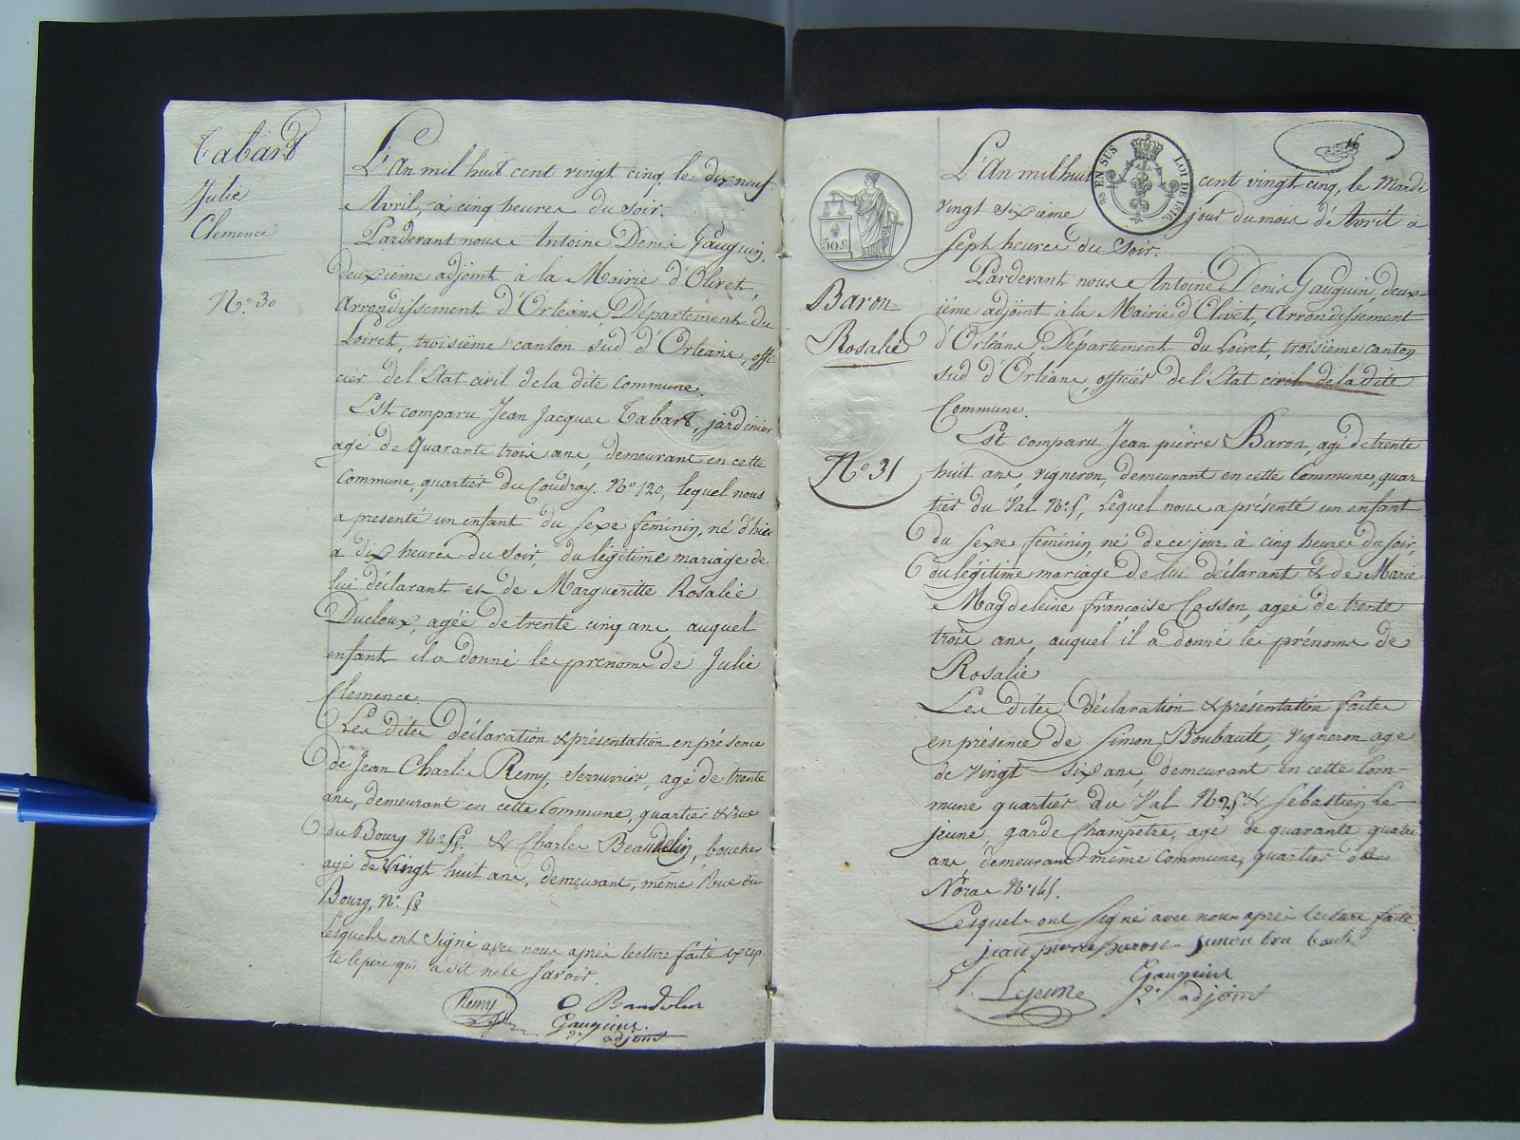 Tabart
Julie
Clemence
N.° 30
L'An mil huit cent vingt cinq, le dix neuf
Avril, à cinq heures du soir.
Pardevant nous Antoine Denis Gauguin,
deuxième adjoint à la Mairie d'Olivet,
Arrondissement d'Orléans, Département du
Loiret, troisième canton sud d'Orléans, offi-
cier de l'Etat civil de la dite commune.
Est comparu Jean Jacques Tabart, jardinier
agé de Quarante trois ans, demeurant en cette
Commune, quartier du Coudray N° 120, lequel nous
a présenté un enfant du sexe féminin, né d'hier
à dix heures du soir, du légitime mariage de
lui déclarant et de Margueritte Rosalie
Ducloux, agée de trente cinq ans, auquel
enfant il a donné les prénoms de Julie
Clemence.
Les dites déclaration & présentation en présence
de Jean Charles Remy, serrurier, agé de trente
ans, demeurant en cette Commune, quartier & rue
du Bourg N° 5. & Charles Beaudelin, boucher
agé de vingt huit ans, demeurant, même Rue du
Bourg, N.° 58
Lesquels ont signé avec nous après lecture faite excep-
té le père qui a dit ne le savoir.
Remy C Baudelin
Gauguin.
2e adjoint
EN SUS LOI DE 1816
50 C
Baron
Rosalie
N° 31
L'An mil huit cent vingt cinq, le Mardi
vingt sixième jour du mois d'Avril à
sept heures du soir.
Pardevant nous Antoine Denis Gauguin, deux-
ième adjoint à la Mairie d'Olivet, Arrondissement
d'Orléans, Département du Loiret, troisième canton
sud d'Orléans, officier de l'Etat civil de la dite
Commune.
Est comparu Jean pierre Baron, agé de trente
huit ans, vigneron, demeurant en cette Commune, quar
tier du Val N° 5, Lequel nous a présenté un enfant
du sexe féminin, né de ce jour à cinq heures du soir,
du légitime mariage de lui déclarant & de Marie
Magdeleine françoise Cosson, agée de trente
trois ans, auquel il a donné les prénoms de
Rosalie
Les dites déclaration & présentation faites
en présence de Simon Boubault, vigneron agé
de vingt six ans, demeurant en cette Com-
mune quartier du Val N° 25 & Sébastien Le-
jeune garde Champêtre, agé de quarante quatre
ans, demeurant même Commune, quartier de
N° 145.
Lesquels ont signé avec nous après lecture faite
jean pierre baron Simon bou bault
S. Lejeune Gauguin
2e adjoint